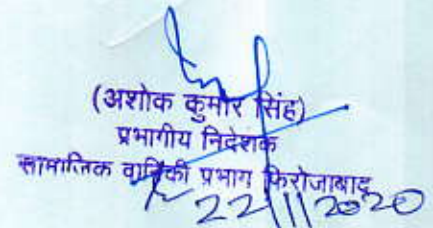 (अशोक कुमार सिंह)
प्रभागीय निदेशक
सामाजिक वानिकी प्रभाग फिरोजाबाद
22/11/2020